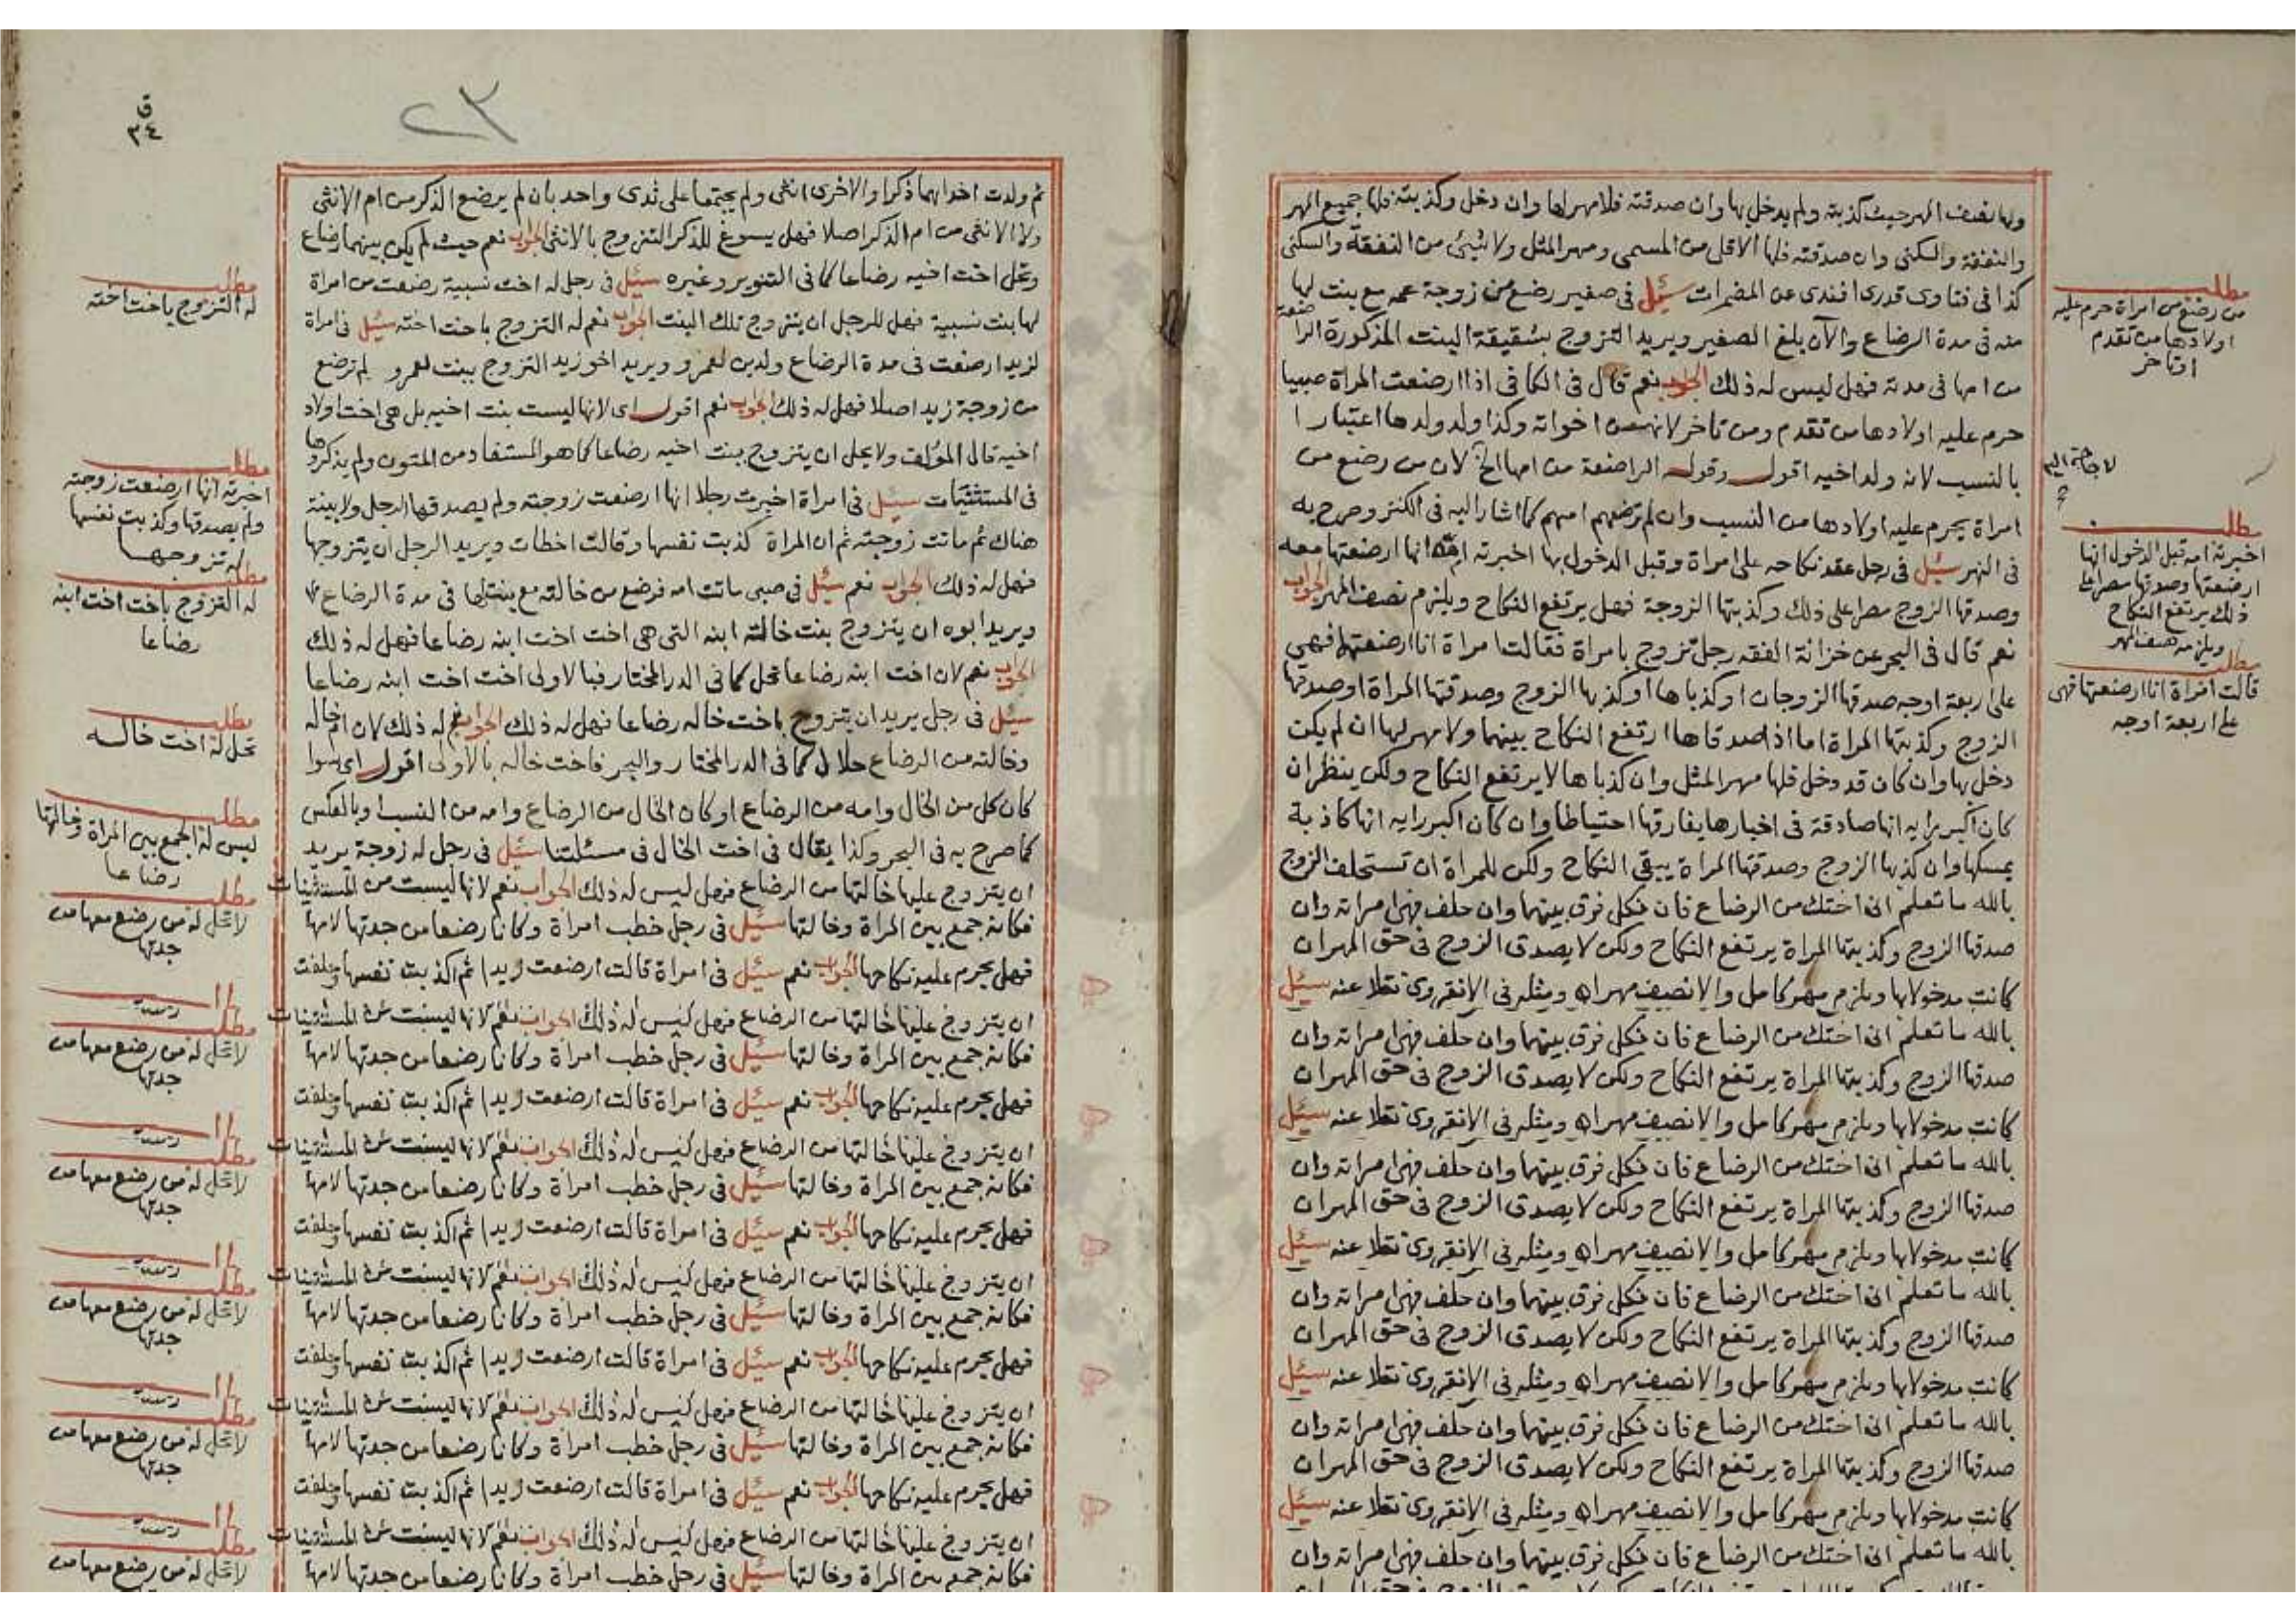 ولها نصف المهر حيث كذبته ولم يدخل بها وان صدقته فلا مهر لها وان دخل وكذبته فلها جميع المهر
والنفقة والسكنى وان صدقته فلها الاقل من المسمى ومهر المثل ولا شيئ من النفقة والسكنى
كذا فى فتاوى قدرى افندى عن المضمرات سئل فى صغير رضع من زوجة عمه مع بنت لها
منه فى مدة الرضاع والآن بلغ الصغير ويريد التزوج بشقيقة البنت المذكورة الراضعة
من امها فى مدته فهل ليس له ذلك الجواب نعم قال فى الكافى اذا ارضعت المراة صبيا
حرم عليه اولادها من تقدم ومن تاخر لانهم من اخواته وكذا ولد ولدها اعتبارا
بالنسب لانه ولد اخيه اقول وقوله الراضعة من امها الخ لان من رضع من
امراة يحرم عليه اولادها من النسب وان لم ترضعهم امهم كما اشار اليه فى الكنز وصرح به
فى النهر سئل فى رجل عقد نكاحه على امراة وقبل الدخول بها اخبرته امه انها ارضعتها معه
وصدقها الزوج مصرا على ذلك وكذبتها الزوجة فهل يرتفع النكاح ويلزم نصف المهر الجواب
نعم قال فى البحر عن خزانة الفقه رجل تزوج بامراة فقالت امراة انا ارضعتهما فهى
على اربعة اوجه صدقها الزوجان او كذباها او كذبها الزوج وصدقتها المراة او صدقها
الزوج وكذبتها المراة اما اذا صدقاها ارتفع النكاح بينهما ولا مهر لها ان لم يكن
دخل بها وان كان قد دخل فلها مهر المثل وان كذباها لا يرتفع النكاح ولكن ينظر ان
كان اكبر رايه انها صادقة فى اخبارها يفارقها احتياطا وان كان اكبر رايه انها كاذبة
يمسكها وان كذبها الزوج وصدقتها المراة يبقى النكاح ولكن للمراة ان تستحلف الزوج
بالله ما تعلم انى اختك من الرضاع فان نكل فرق بينهما وان حلف فهى امراته وان
صدقها الزوج وكذبتها المراة يرتفع النكاح ولكن لا يصدق الزوج فى حق المهر ان
كانت مدخولا بها ويلزم مهر كامل والا نصف مهر اه ومثله فى الانقروى نقلا عنه سئل
بالله ما تعلم انى اختك من الرضاع فان نكل فرق بينهما وان حلف فهى امراته وان
صدقها الزوج وكذبتها المراة يرتفع النكاح ولكن لا يصدق الزوج فى حق المهر ان
كانت مدخولا بها ويلزم مهر كامل والا نصف مهر اه ومثله فى الانقروى نقلا عنه سئل
بالله ما تعلم انى اختك من الرضاع فان نكل فرق بينهما وان حلف فهى امراته وان
صدقها الزوج وكذبتها المراة يرتفع النكاح ولكن لا يصدق الزوج فى حق المهر ان
كانت مدخولا بها ويلزم مهر كامل والا نصف مهر اه ومثله فى الانقروى نقلا عنه سئل
بالله ما تعلم انى اختك من الرضاع فان نكل فرق بينهما وان حلف فهى امراته وان
صدقها الزوج وكذبتها المراة يرتفع النكاح ولكن لا يصدق الزوج فى حق المهر ان
كانت مدخولا بها ويلزم مهر كامل والا نصف مهر اه ومثله فى الانقروى نقلا عنه سئل
بالله ما تعلم انى اختك من الرضاع فان نكل فرق بينهما وان حلف فهى امراته وان
صدقها الزوج وكذبتها المراة يرتفع النكاح ولكن لا يصدق الزوج فى حق المهر ان
كانت مدخولا بها ويلزم مهر كامل والا نصف مهر اه ومثله فى الانقروى نقلا عنه سئل
بالله ما تعلم انى اختك من الرضاع فان نكل فرق بينهما وان حلف فهى امراته وان
مطلب
من رضع من امراة حرم عليه
اولادها من تقدم
او تاخر
مطلب
اخبرته امه قبل الدخول انها
ارضعتها وصدقها مصرا على
ذلك يرتفع النكاح
ويلزمه نصف المهر
مطلب
قالت امراة انا ارضعتهما فهى
على اربعة اوجه
ق
٣٤
٢٣
ثم ولدت اخداهما ذكرا والاخرى انثى ولم يجتمعا على ثدى واحد بان لم يرضع الذكر من ام الانثى
ولا الانثى من ام الذكر اصلا فهل يسوغ للذكر التزوج بالانثى الجواب نعم حيث لم يكن بينهما رضاع
وتحل اخت اخيه رضاعا كما فى التنوير وغيره سئل فى رجل له اخت نسبية رضعت من امراة
لها بنت نسبية فهل للرجل ان يتزوج تلك البنت الجواب نعم له التزوج باخت اخته سئل فى امراة
لزيد ارضعت فى مدة الرضاع ولدين لعمرو ويريد اخو زيد التزوج ببنت لعمرو لم ترضع
من زوجة زيد اصلا فهل له ذلك الجواب نعم اقول اى لانها ليست بنت اخيه بل هى اخت اولاد
اخيه قال المؤلف ولا يحل ان يتزوج بنت اخيه رضاعا كما هو المستفاد من المتون ولم يذكروها
فى المستثنيات سئل فى امراة اخبرت رجلا انها ارضعت زوجته ولم يصدقها الرجل ولا بينة
هناك ثم ماتت زوجته ثم ان المراة كذبت نفسها وقالت اخطات ويريد الرجل ان يتزوجها
فهل له ذلك الجواب نعم سئل فى صبى ماتت امه فرضع من خالته مع بنتها فى مدة الرضاع
ويريد ابوه ان يتزوج بنت خالته ابنه التى هى اخت اخت ابنه رضاعا فهل له ذلك
الجواب نعم لان اخت ابنه رضاعا تحل كما فى الدر المختار فبالاولى اخت اخت ابنه رضاعا
سئل فى رجل يريد ان يتزوج باخت خاله رضاعا فهل له ذلك الجواب نعم له ذلك لان ام خاله
وخالته من الرضاع حلال كما فى الدر المختار والبحر فاخت خاله بالاولى اقول اى سوا
كان كل من الخال وامه من الرضاع او كان الخال من الرضاع وامه من النسب او بالعكس
كما صرح به فى البحر وكذا يقال فى اخت الخال فى مسئلتنا سئل فى رجل له زوجة يريد
ان يتزوج عليها خالتها من الرضاع فهل ليس له ذلك الجواب نعم لانها ليست من المستثنيات
فكانه جمع بين المراة وخالتها سئل فى رجل خطب امراة وكانا رضعا من جدتها لامها
فهل يحرم عليه نكاحها الجواب نعم سئل فى امراة قالت ارضعت زيدا ثم اكذبت نفسها وحلفت
ان يتزوج عليها خالتها من الرضاع فهل ليس له ذلك الجواب نعم لانها ليست من المستثنيات
فكانه جمع بين المراة وخالتها سئل فى رجل خطب امراة وكانا رضعا من جدتها لامها
فهل يحرم عليه نكاحها الجواب نعم سئل فى امراة قالت ارضعت زيدا ثم اكذبت نفسها وحلفت
ان يتزوج عليها خالتها من الرضاع فهل ليس له ذلك الجواب نعم لانها ليست من المستثنيات
فكانه جمع بين المراة وخالتها سئل فى رجل خطب امراة وكانا رضعا من جدتها لامها
فهل يحرم عليه نكاحها الجواب نعم سئل فى امراة قالت ارضعت زيدا ثم اكذبت نفسها وحلفت
ان يتزوج عليها خالتها من الرضاع فهل ليس له ذلك الجواب نعم لانها ليست من المستثنيات
فكانه جمع بين المراة وخالتها سئل فى رجل خطب امراة وكانا رضعا من جدتها لامها
فهل يحرم عليه نكاحها الجواب نعم سئل فى امراة قالت ارضعت زيدا ثم اكذبت نفسها وحلفت
ان يتزوج عليها خالتها من الرضاع فهل ليس له ذلك الجواب نعم لانها ليست من المستثنيات
فكانه جمع بين المراة وخالتها سئل فى رجل خطب امراة وكانا رضعا من جدتها لامها
فهل يحرم عليه نكاحها الجواب نعم سئل فى امراة قالت ارضعت زيدا ثم اكذبت نفسها وحلفت
ان يتزوج عليها خالتها من الرضاع فهل ليس له ذلك الجواب نعم لانها ليست من المستثنيات
فكانه جمع بين المراة وخالتها سئل فى رجل خطب امراة وكانا رضعا من جدتها لامها
مطلب
له التزوج باخت اخته
مطلب
اخبرته انها ارضعت زوجته
ولم يصدقها وكذبت نفسها
له تزوجها
مطلب
له التزوج باخت اخت ابنه
رضاعا
مطلب
تحل له اخت خاله
مطلب
ليس له الجمع بين المراة وخالتها
رضاعا
مطلب
لا تحل له من رضع معها من
جدتها
مطلب
لا تحل له من رضع معها من
جدتها
مطلب
لا تحل له من رضع معها من
جدتها
مطلب
لا تحل له من رضع معها من
جدتها
مطلب
لا تحل له من رضع معها من
جدتها
مطلب
لا تحل له من رضع معها من